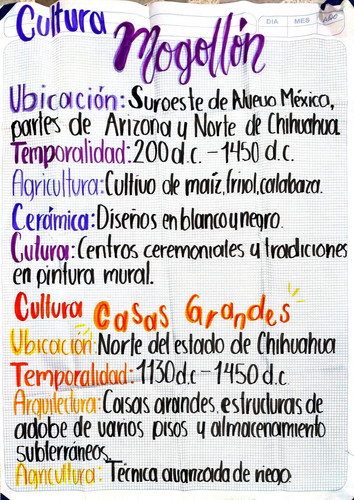 Cultura
DIA MES AÑO
Mogollón
Ubicación: Suroeste de Nuevo México,
partes de Arizona y Norte de Chihuahua.
Temporalidad: 200 d.c. - 1450 d.c.
Agricultura: Cultivo de maíz, frijol, calabaza.
Cerámica: Diseños en blanco y negro.
Culura: Centros ceremoniales y tradiciones
en pintura mural.
Cultura Casas Grandes
Ubicación: Norte del estado de Chihuahua
Temporalidad: 1130 d.c - 1450 d.c.
Arquitectura: Casas grandes, estructuras de
adobe de varios pisos y almacenamiento
subterráneos.
Agricultura: Técnica avanzada de riego.